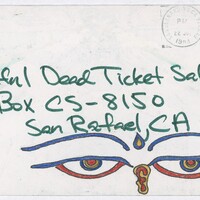 Dead Ticket Sal
Box CS-8150
San Rafael, CA